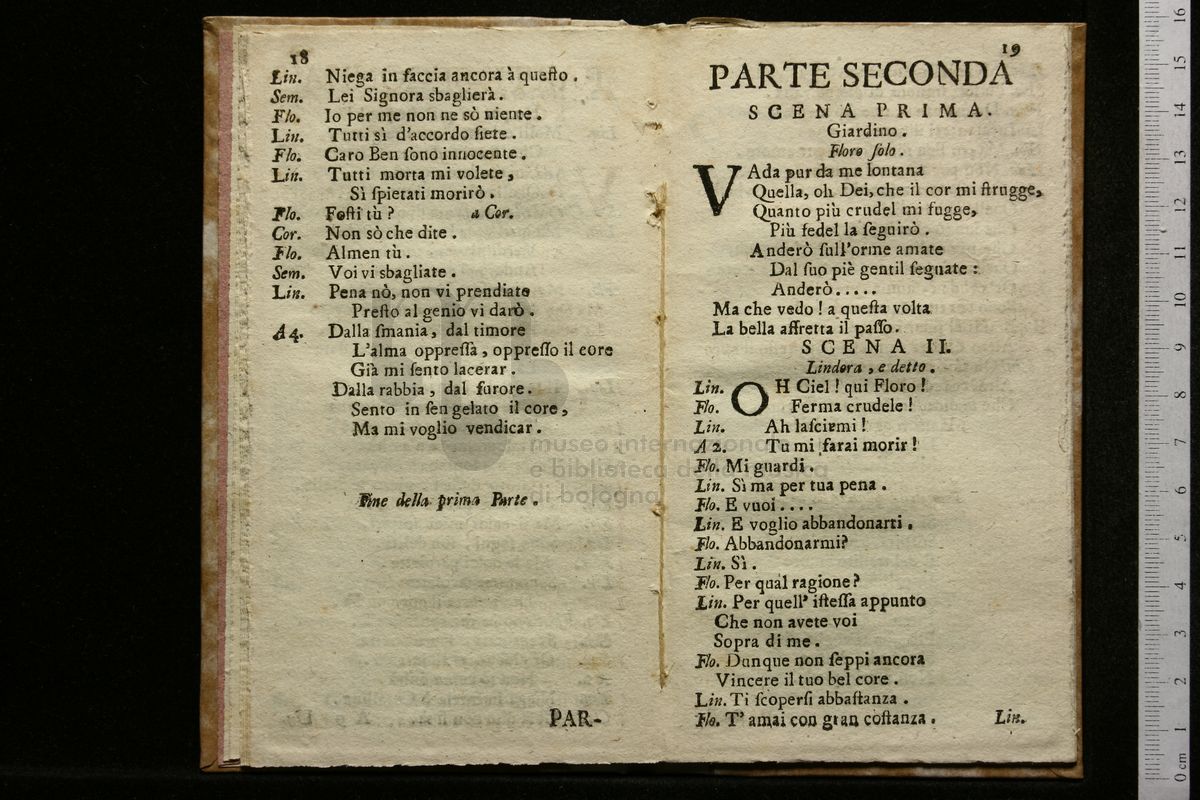 18
Lin. Niega in faccia ancora à queſto.
Sem. Lei Signora sbaglierà.
Flo. Io per me non ne sò niente.
Lin. Tutti sì d'accordo ſiete.
Flo. Caro Ben ſono innocente.
Lin. Tutti morta mi volete,
Sì ſpietati morirò.
Flo. Foſti tù? a Cor.
Cor. Non sò che dite.
Flo. Almen tù.
Sem. Voi vi sbagliate.
Lin. Pena nò, non vi prendiate
Preſto al genio vi darò.
A 4. Dalla ſmania, dal timore
L'alma oppreſſa, oppreſſo il core
Già mi ſento lacerar.
Dalla rabbia, dal furore.
Sento in ſen gelato il core,
Ma mi voglio vendicar.
Fine della prima Parte.
PAR-
19
PARTE SECONDA
SCENA PRIMA.
Giardino.
Floro ſolo.
VAda pur da me lontana
Quella, oh Dei, che il cor mi ſtrugge,
Quanto più crudel mi fugge,
Più fedel la ſeguirò.
Anderò ſull'orme amate
Dal ſuo piè gentil ſegnate:
Anderò.....
Ma che vedo! a queſta volta
La bella affretta il paſſo.
SCENA II.
Lindora, e detto.
Lin. OH Ciel! qui Floro!
Flo. Ferma crudele!
Lin. Ah laſciami!
A 2. Tu mi farai morir!
Flo. Mi guardi.
Lin. Sì ma per tua pena.
Flo. E vuoi....
Lin. E voglio abbandonarti.
Flo. Abbandonarmi?
Lin. Sì.
Flo. Per qual ragione?
Lin. Per quell' iſteſſa appunto
Che non avete voi
Sopra di me.
Flo. Dunque non ſeppi ancora
Vincere il tuo bel core.
Lin. Ti ſcoperſi abbaſtanza.
Flo. T' amai con gran coſtanza.
Lin.
museo internazionale
e biblioteca della musica
di bologna